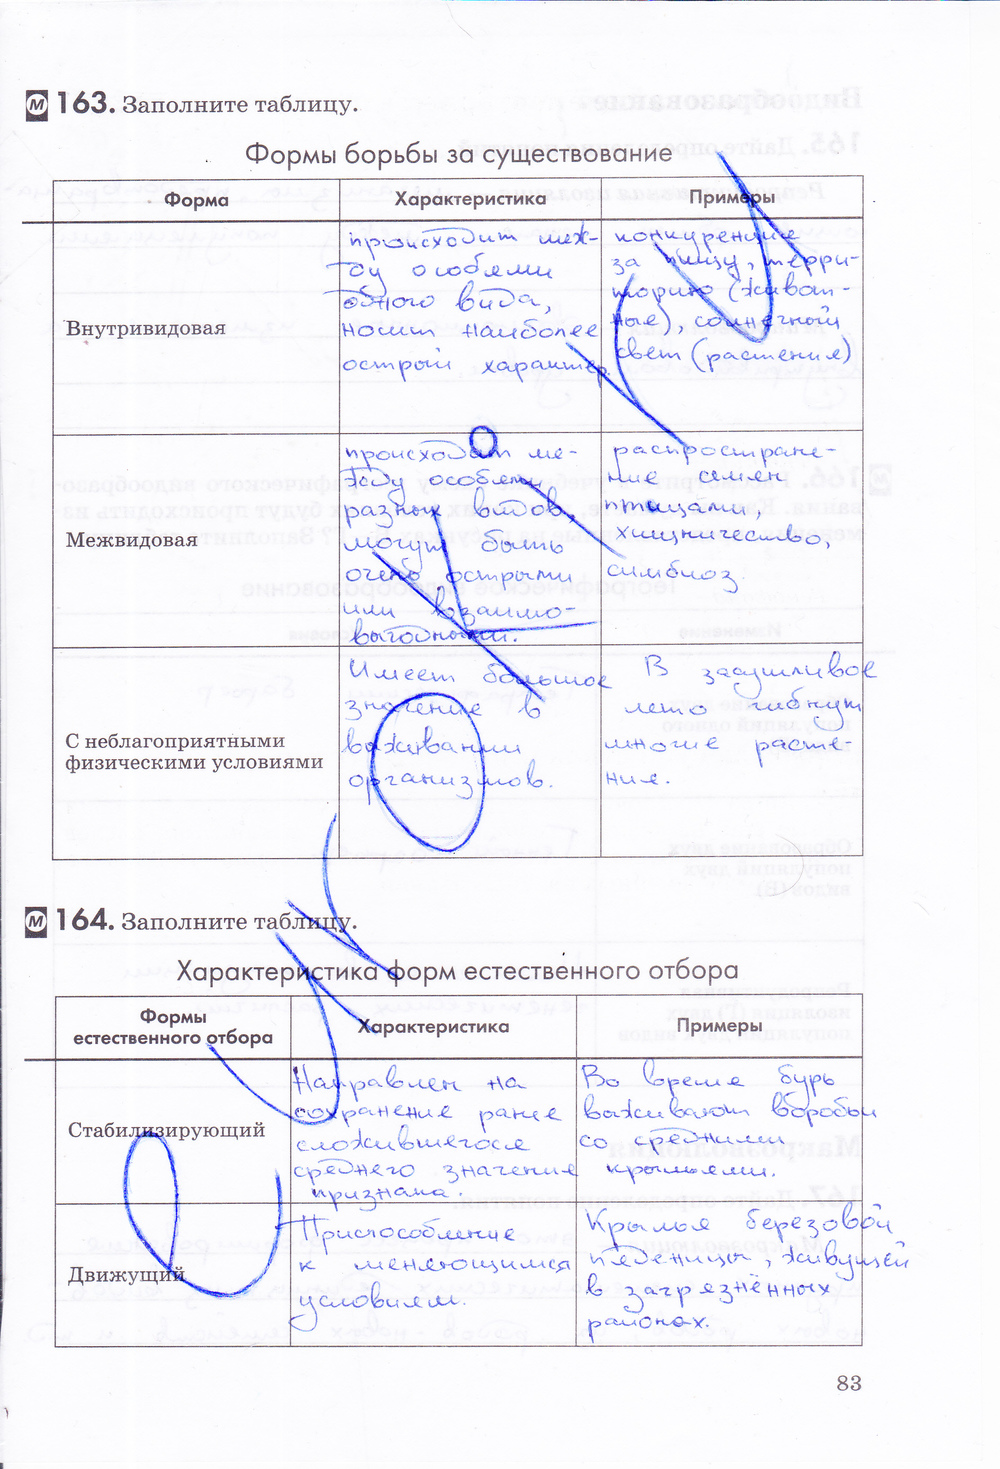 М 163. Заполните таблицу.
Формы борьбы за существование
Форма
Характеристика
Примеры
Внутривидовая
происходит меж-
ду особями
одного вида,
носит наиболее
острый характер.
конкуренция
за пищу, терри-
торию (живот-
ные), солнечный
свет (растения)
Межвидовая
происходит ме-
жду особями
разных видов,
могут быть
очень острыми
или взаимо-
выгодными.
распростране-
ние семян
птицами,
хищничество,
симбиоз.
С неблагоприятными
физическими условиями
Имеет большое
значение в
выживании
организмов.
В засушливое
лето гибнут
многие расте-
ния.
М 164. Заполните таблицу.
Характеристика форм естественного отбора
Формы
естественного отбора
Характеристика
Примеры
Стабилизирующий
Направлен на
сохранение ранее
сложившегося
среднего значения
признака.
Во время бурь
выживают воробьи
со средними
крыльями.
Движущий
Приспособление
к меняющимся
условиям.
Крылья берёзовой
пяденицы, живущей
в загрязнённых
районах.
83